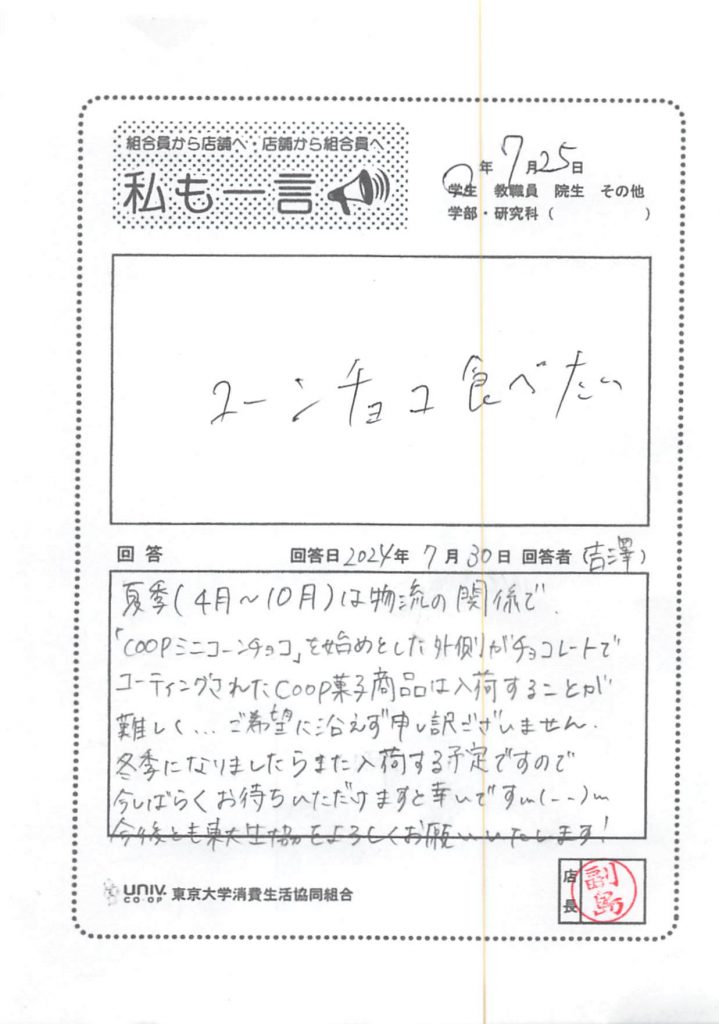 組合員から店舗へ・店舗から組合員へ
私も一言
年7月25日
学生 教職員 院生 その他
学部・研究科( )
コーンチョコ食べたい
回答 回答日2024年7月30日 回答者(吉澤)
夏季(4月～10月)は物流の関係で、
「COOPミニコーンチョコ」を始めとした外側がチョコレートで
コーティングされたCOOP菓子商品は入荷することが
難しく…ご希望に沿えず申し訳ございません。
冬季になりましたらまた入荷する予定ですので
今しばらくお待ちいただけますと幸いですm(--)m
今後とも東大生協をよろしくお願いいたします!
UNIV. CO-OP 東京大学消費生活協同組合
店長 副島